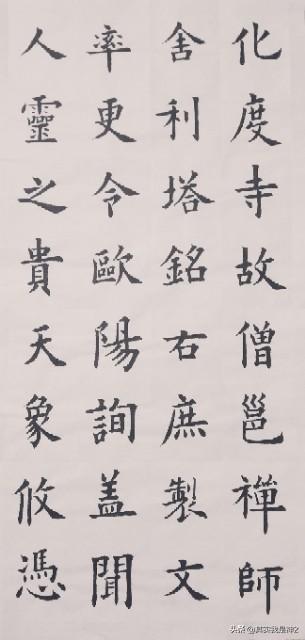 化度寺故僧邕禪師
舍利塔銘右庶製文
率更令歐陽詢蓋聞
人靈之貴天象攸憑
头条 @其实我是神2